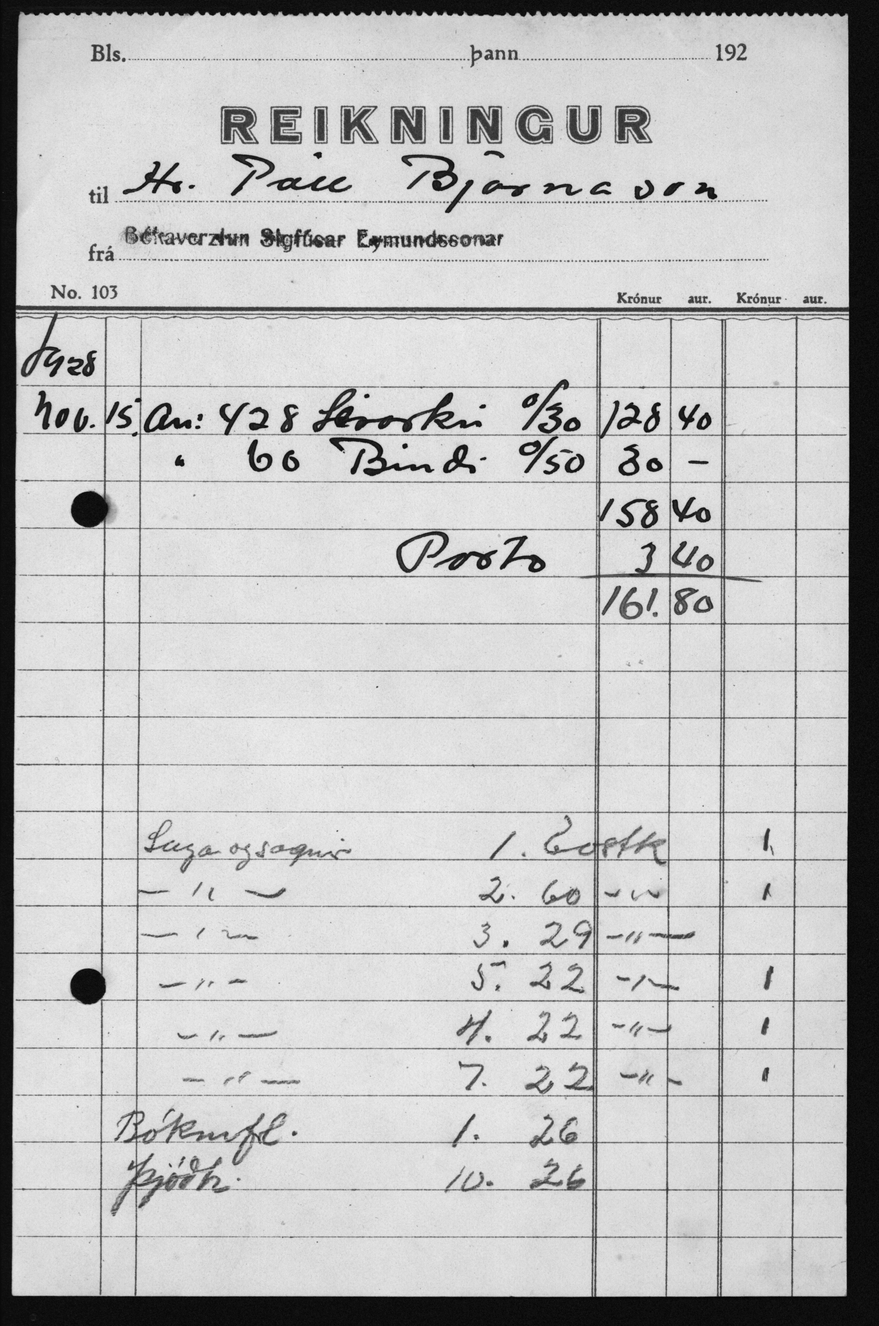 Bls. þann 192
REIKNINGUR
til Hr. Páll Bjarnason
frá Bókaverzlun Sigfúsar Eymundssonar
No. 103 Krónur aur. Krónur aur.
1928
Nov. 15. An: 428 º/30 128 40
" 60 Bindi º/50 30 –
158 40
Porto 3 40
161.80
Saga og sagnir 1. 60 stk 1
— " — 2. 60 — " — 1
— " — 3. 29 — " —
— " — 5. 22 — " — 1
— " — 4. 22 — " — 1
— " — 7. 22 — " — 1
Bókmfl. 1. 26
Þjóðh. 10. 26